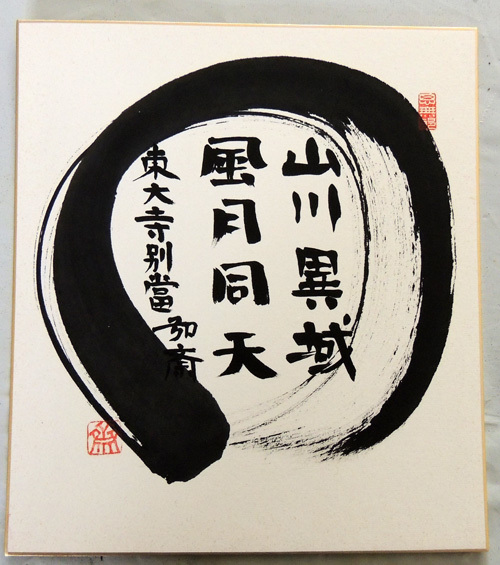 山川異域
風月同天
東大寺別當